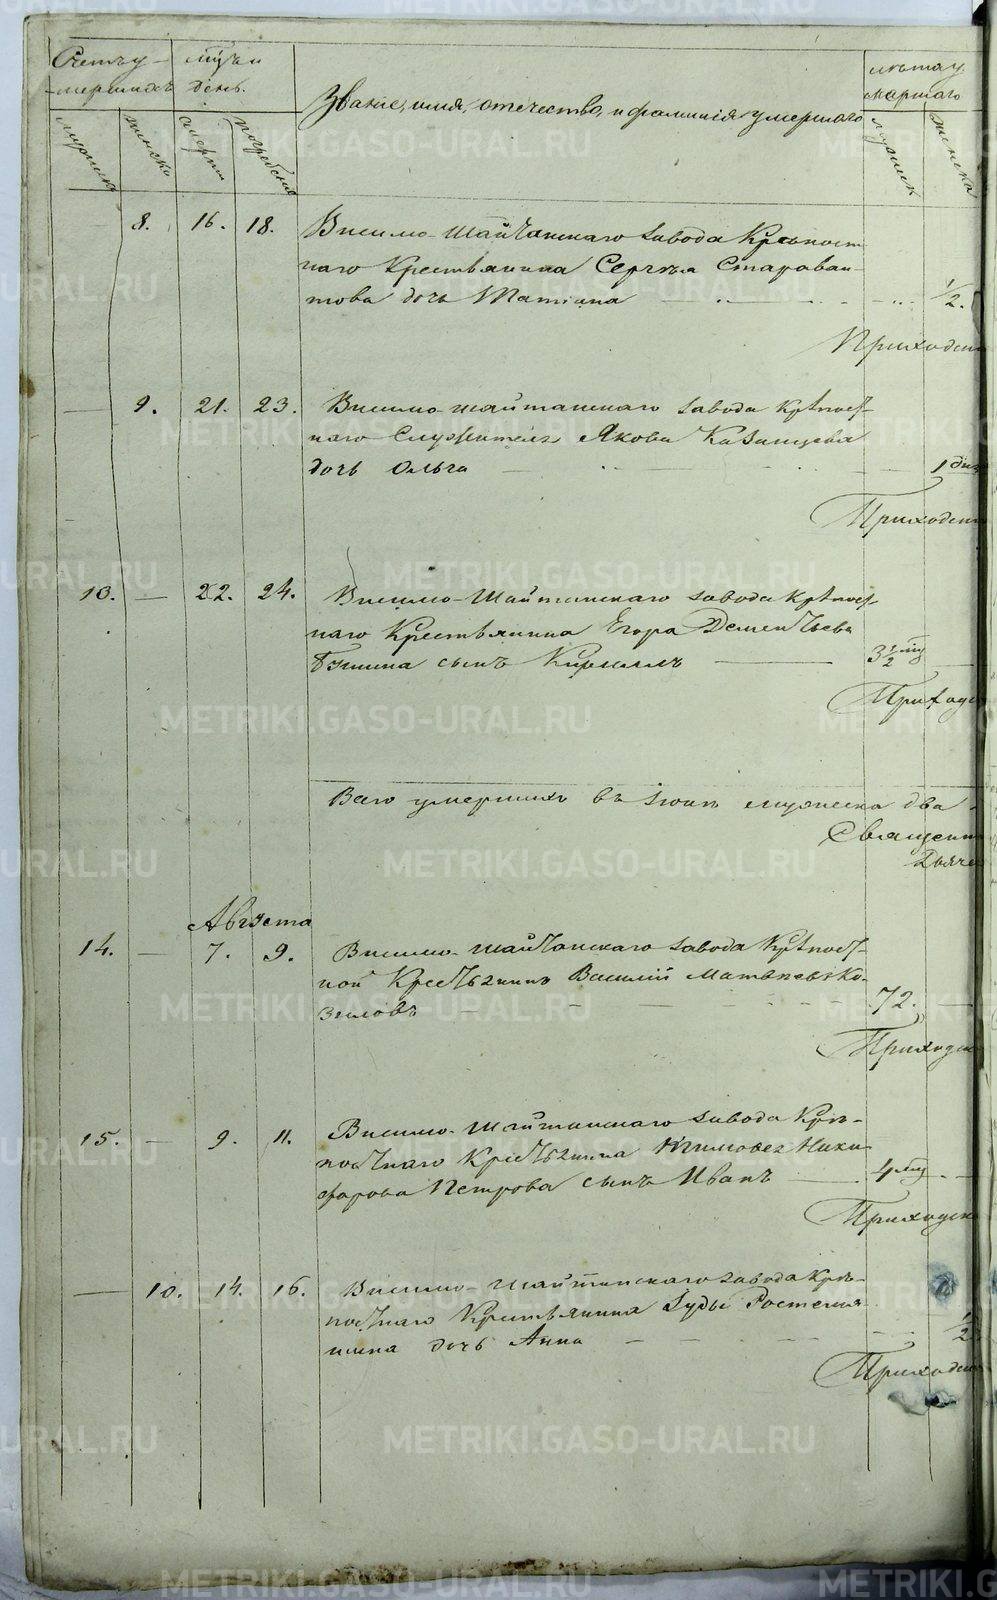 Счетъ у-
мершихъ
Мѣсяцъ и
день.
Званіе, имя, отечество, и фамилія умершаго
Лѣта у
мершаго
мужска
женска
смерти
погребенія
мужск
женска
8. 16. 18. Висимо-Шайтанскаго завода Крѣпост
наго Крестьянина Сергѣя Старован
това дочь Татіана 1/2.
Приходски
9. 21. 23. Висимо-шайтанскаго завода Крѣпост-
наго Служителя Якова Казанцева
дочь Ольга 1 дня
Приходски
13. — 22. 24. Висимо-Шайтанскаго завода Крѣпост-
наго Крестьянина Егора Дементьева
сынъ Кириллъ 3 1/2 мц
Приходс
Всего умершихъ въ Іюлѣ мужеска два
Священни
Дьяче
Августа
14. — 7. 9. Висимо-Шайтанскаго завода Крѣпост-
ной Крестьянинъ Василій Матвѣевъ Ко-
згловъ 72.
Приходск
15. — 9. 11. Висимо-Шайтанскаго завода Крѣ-
постнаго Крестьянина Тимофея Ники
форова Петрова сынъ Иванъ 4 мц
Приходск
— 10. 14. 16. Висимо-Шайтанскаго завода Крѣ-
постнаго Крестьянина Іуды
дочь Анна 1/2
Приходск
METRIKI.GASO-URAL.RU